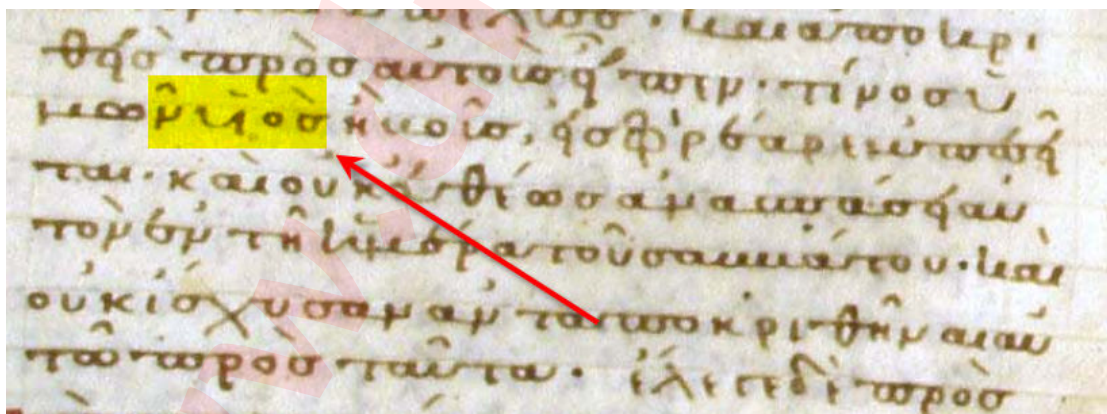 καὶ ἀποκρι
θεὶς πρὸς αὐτοὺς εἶπεν· τίνος ὑ
μῶν υἱὸς ἢ βοῦς, εἰς φρέαρ ἐμπεσεῖ
ται· καὶ οὐκ εὐθέως ἀνασπάσει αὐ
τὸν ἐν τῆ ἡμέρα τοῦ σαββάτου· καὶ
οὐκ ἴσχυσαν ἀνταποκριθῆναι αὐ
τῶ πρὸς ταῦτα· ἔλεγε δὲ πρὸς